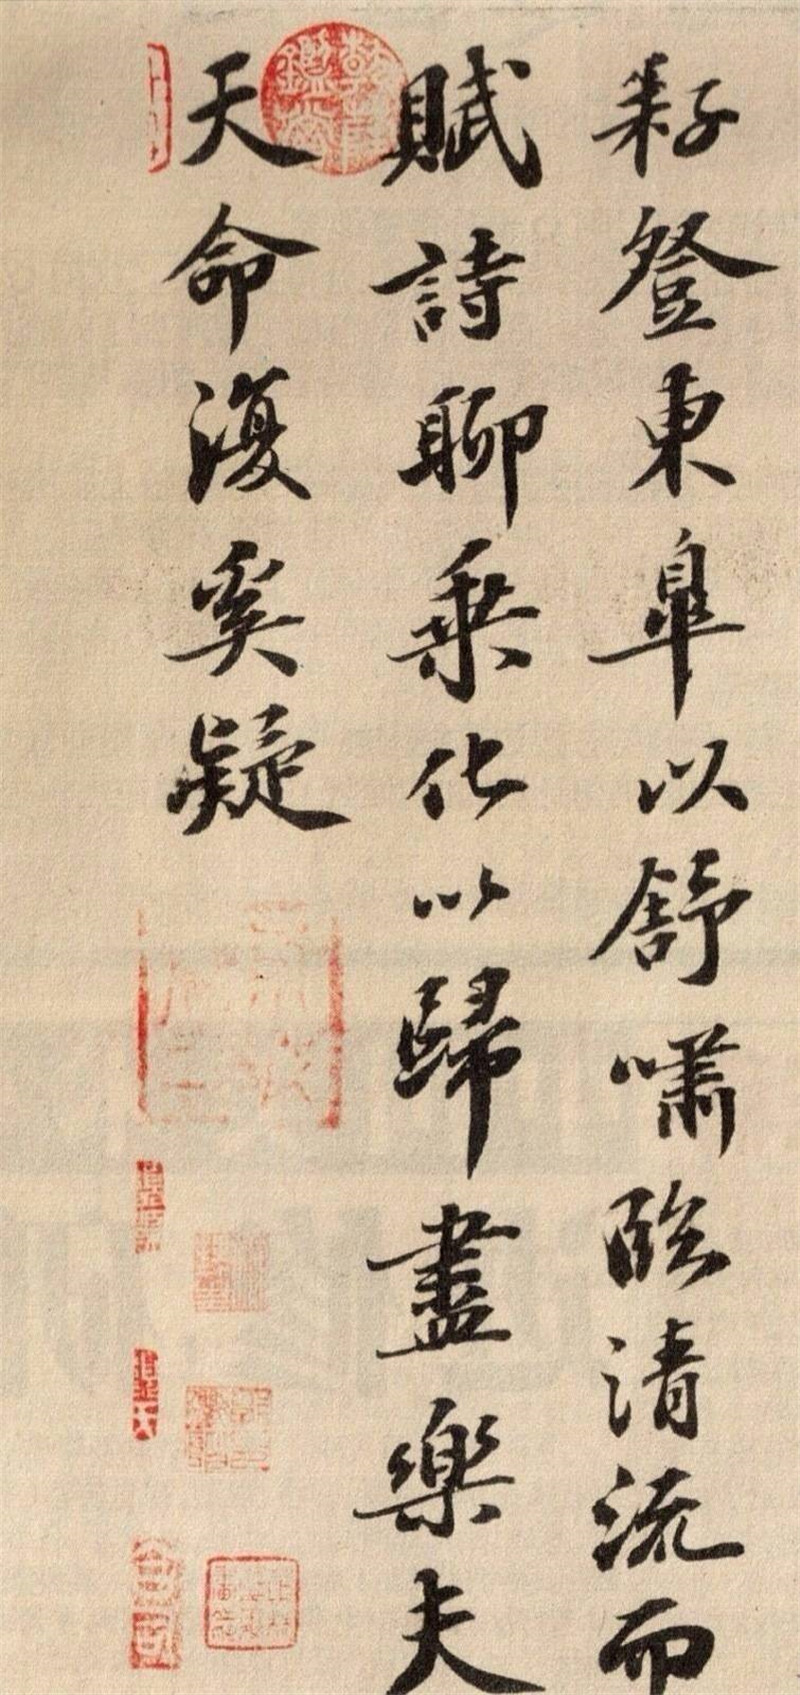 耔登東皐以舒嘯臨清流而
賦詩聊乘化以歸盡樂夫
天命復奚疑